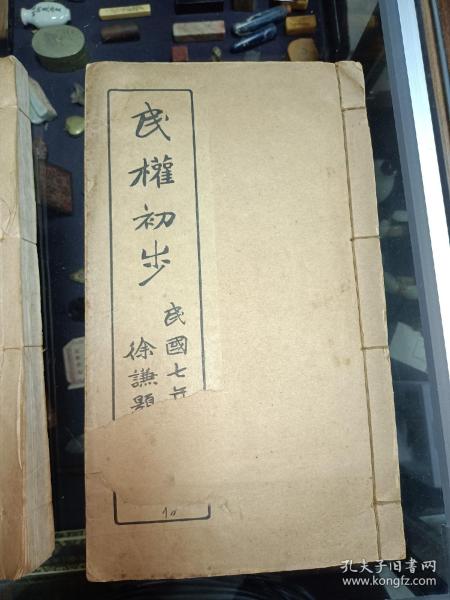 民權初步
民國七年
徐謙題
孔夫子旧书网
www.kongfz.com